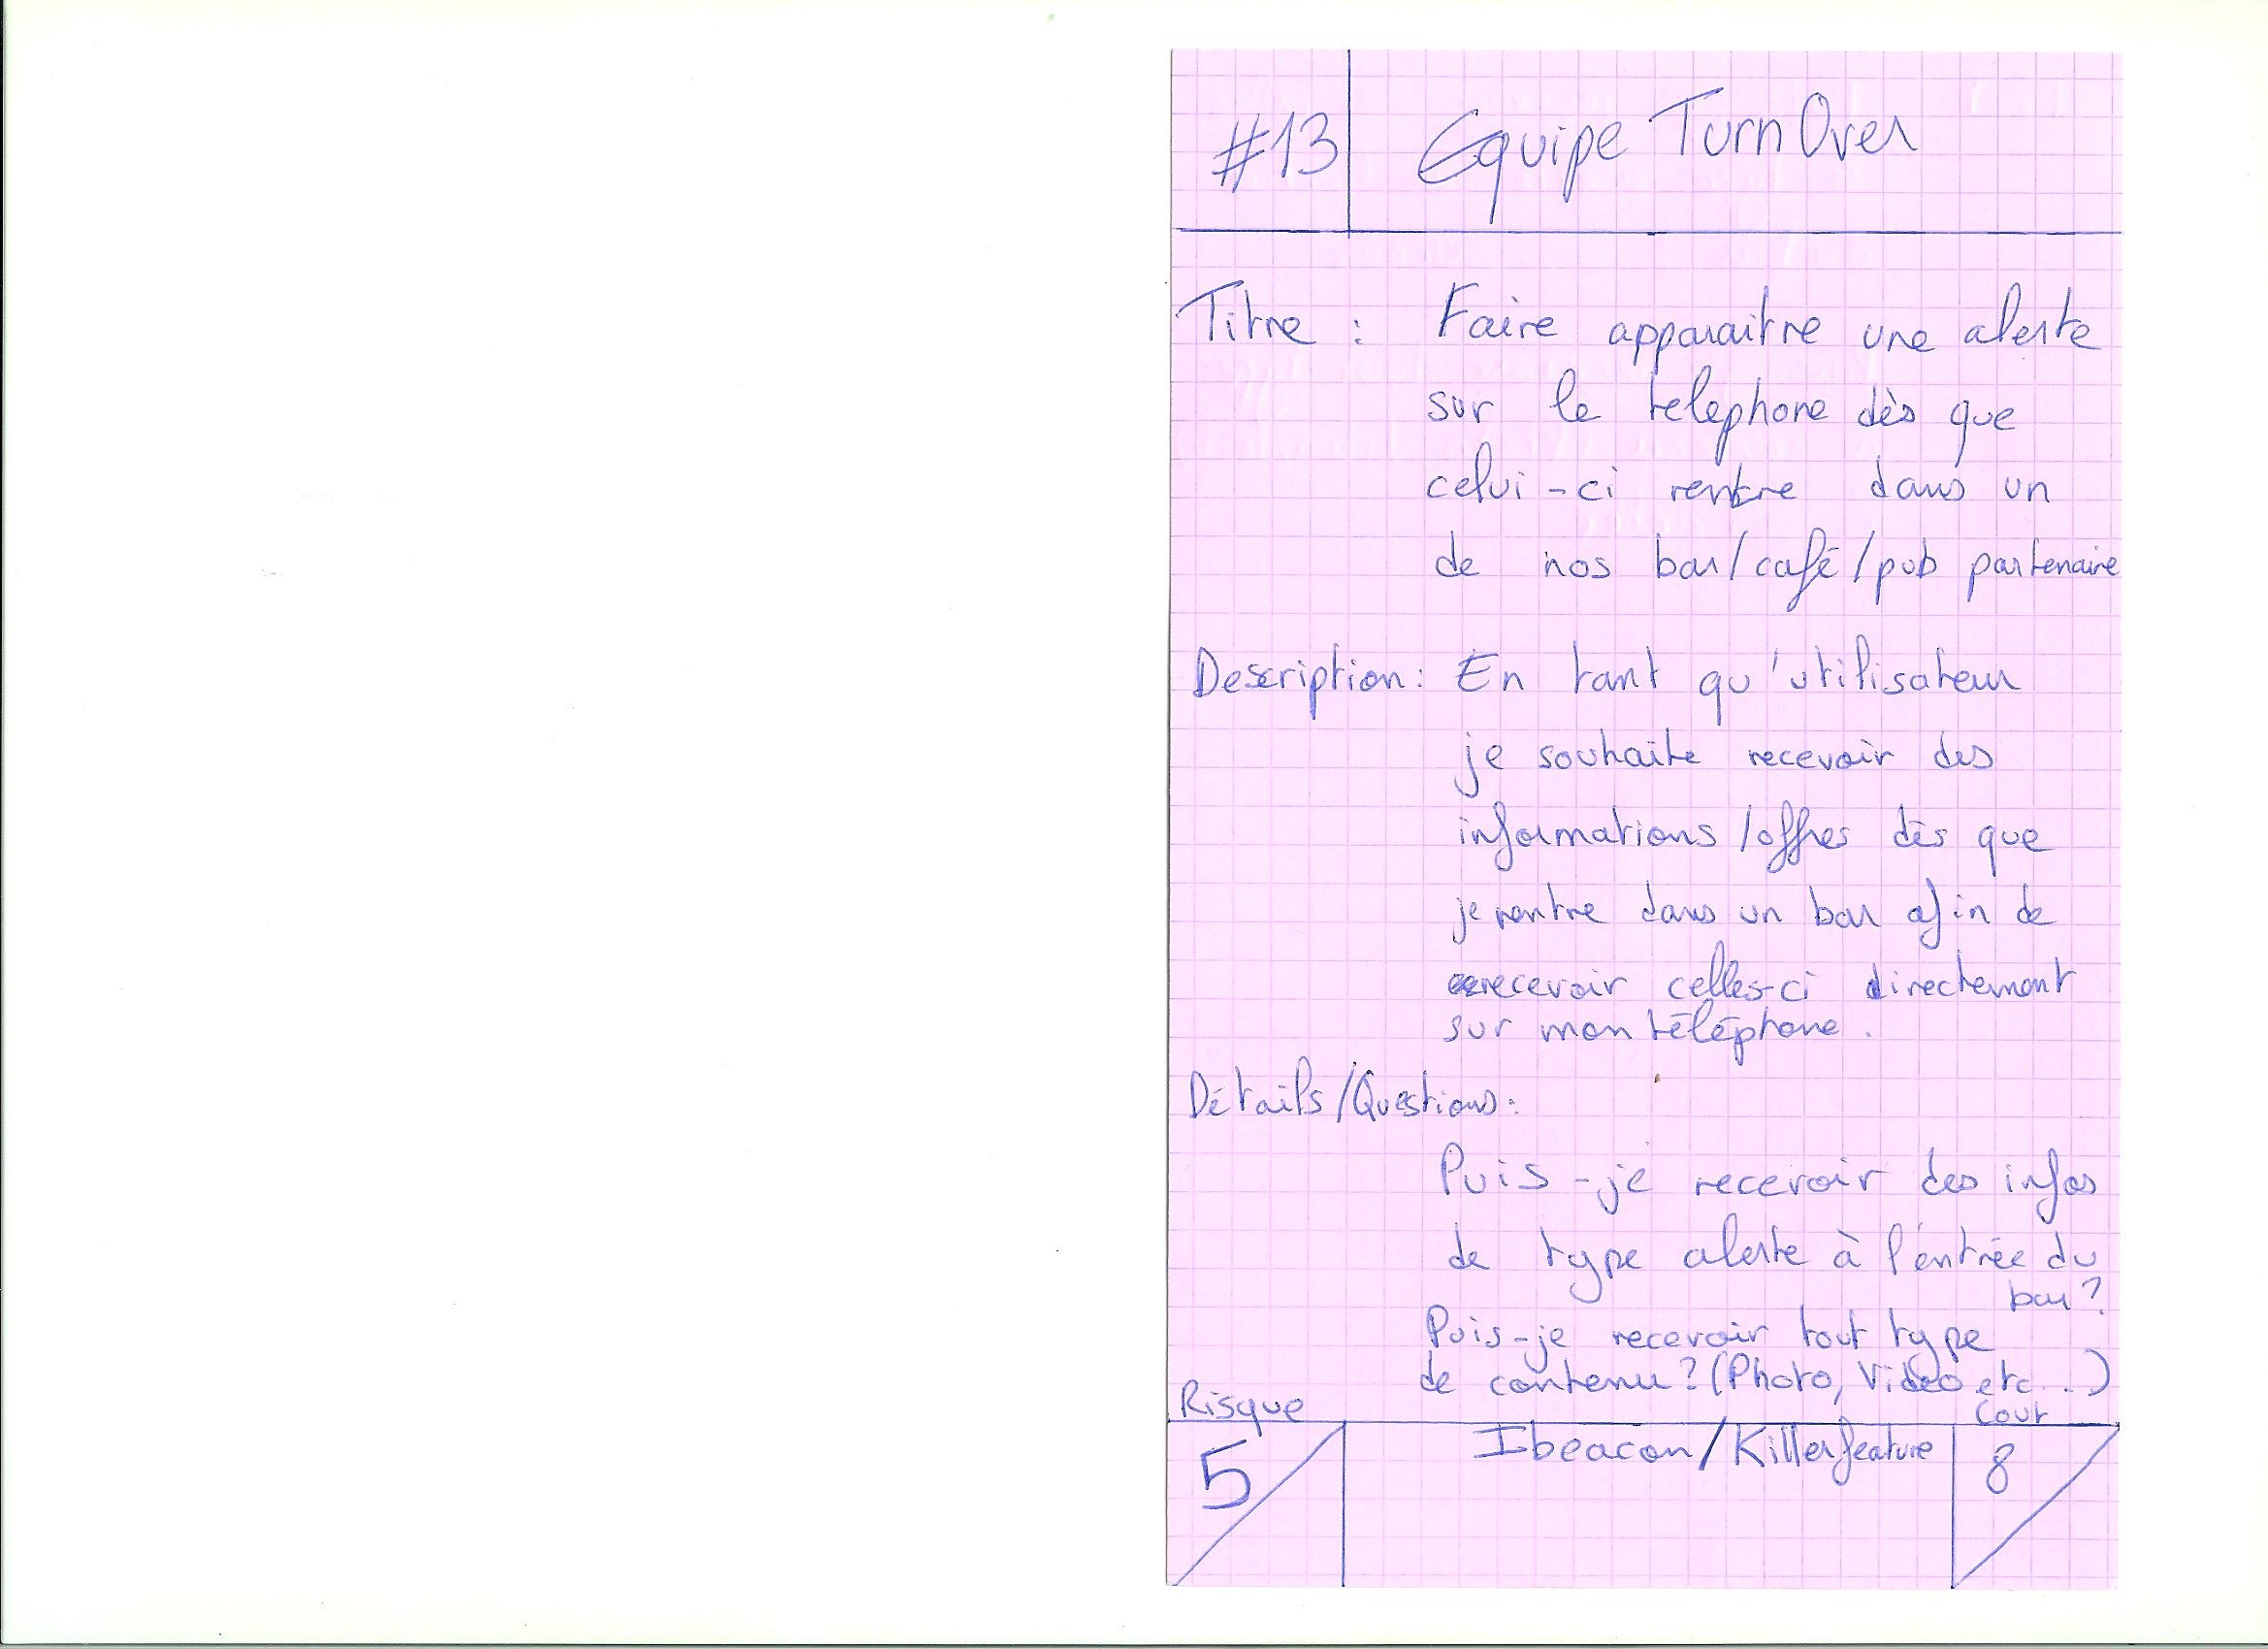 #13 Equipe TurnOver
Titre : Faire apparaitre une alerte
sur le telephone dès que
celui-ci rentre dans un
de nos bar/café/pub partenaire
Description: En tant qu'utilisateur
je souhaite recevoir des
informations/offres dès que
je rentre dans un bar afin de
recevoir celles-ci directement
sur mon téléphone.
Détails/Questions:
Puis-je recevoir des infos
de type alerte à l'entrée du
bar?
Puis-je recevoir tout type
de contenu? (Photo, Video etc...)
Risque Cout
5 Ibeacon/Killerfeature 8